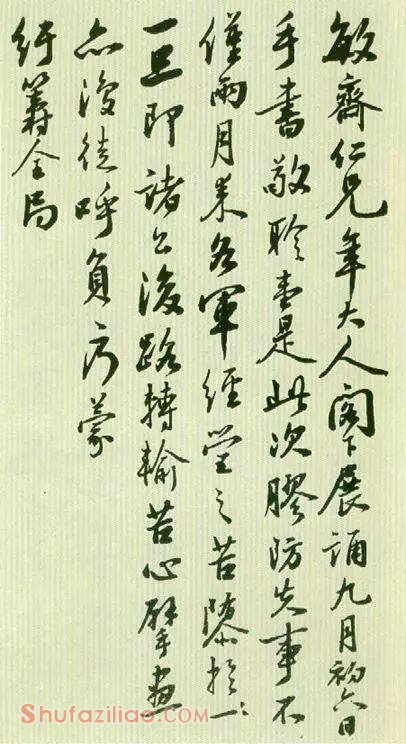 敏齋仁兄年大人閣下展誦九月初六日
手書敬聆壹是此次膠防失事不
僅兩月來各軍經營之苦隳於一
一旦即諸公後路轉輸苦心擘畫
亦復徒呼負蒙
紆籌全局
Shufaziliao.com